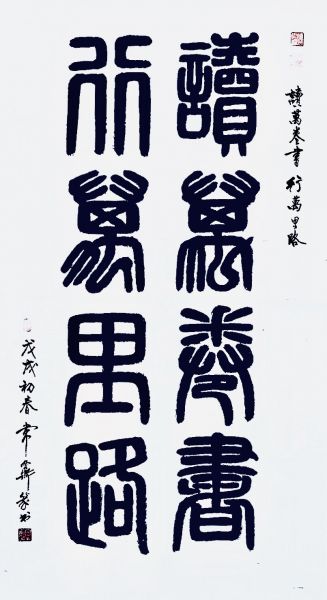 讀萬卷書
行萬里路
讀萬卷書 行萬里路
戊戌初春